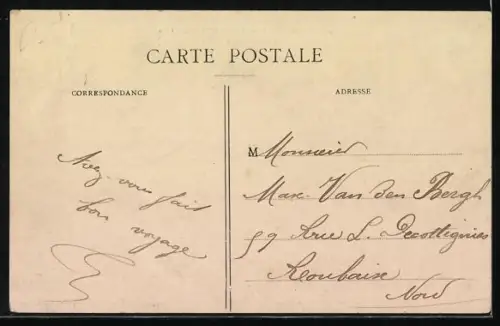 CARTE POSTALE
CORRESPONDANCE
ADRESSE
Avez-vous fait
bon voyage
M Monsieur
Max Van den Bergh
59 Rue L. Decottignies
Roubaix
Nord